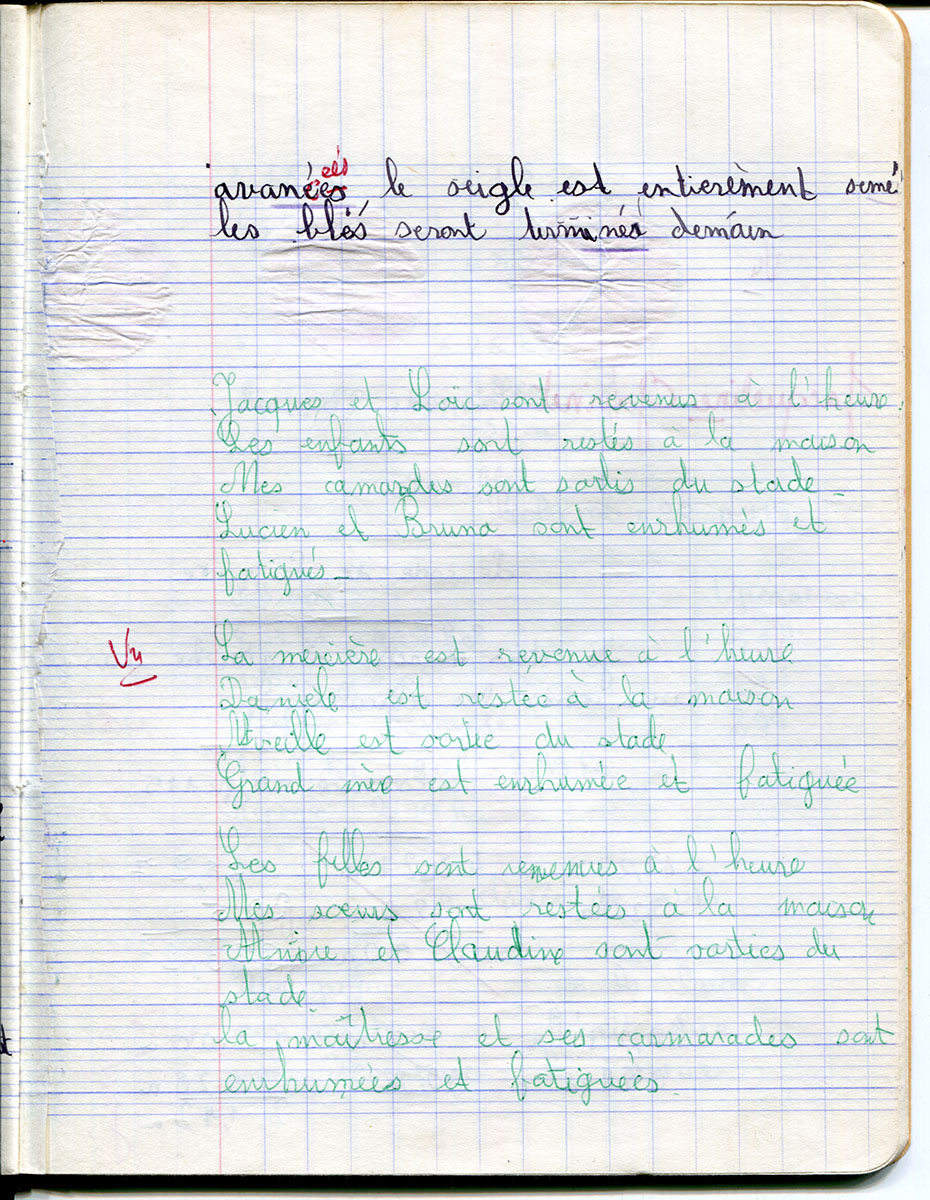 eés
avancées le seigle est entierèment semé
les blés seront terminés demain
Jacques et Loïc sont revenus à l'heure.
Les enfants sont restés à la maison
Mes camardes sont sortis du stade_
Lucien et Bruno sont enrhumés et
fatigués_
Vu
La mercière est revenue à l'heure
Danièle est restée à la maison
est sortie du stade
Grand mère est enrhumée et fatiguée
Les filles sont revenues à l'heure
Mes soeurs sont restées à la maison
et Claudine sont sorties du
stade
la maîtresse et ses carmarades sont
enrhumées et fatiguées